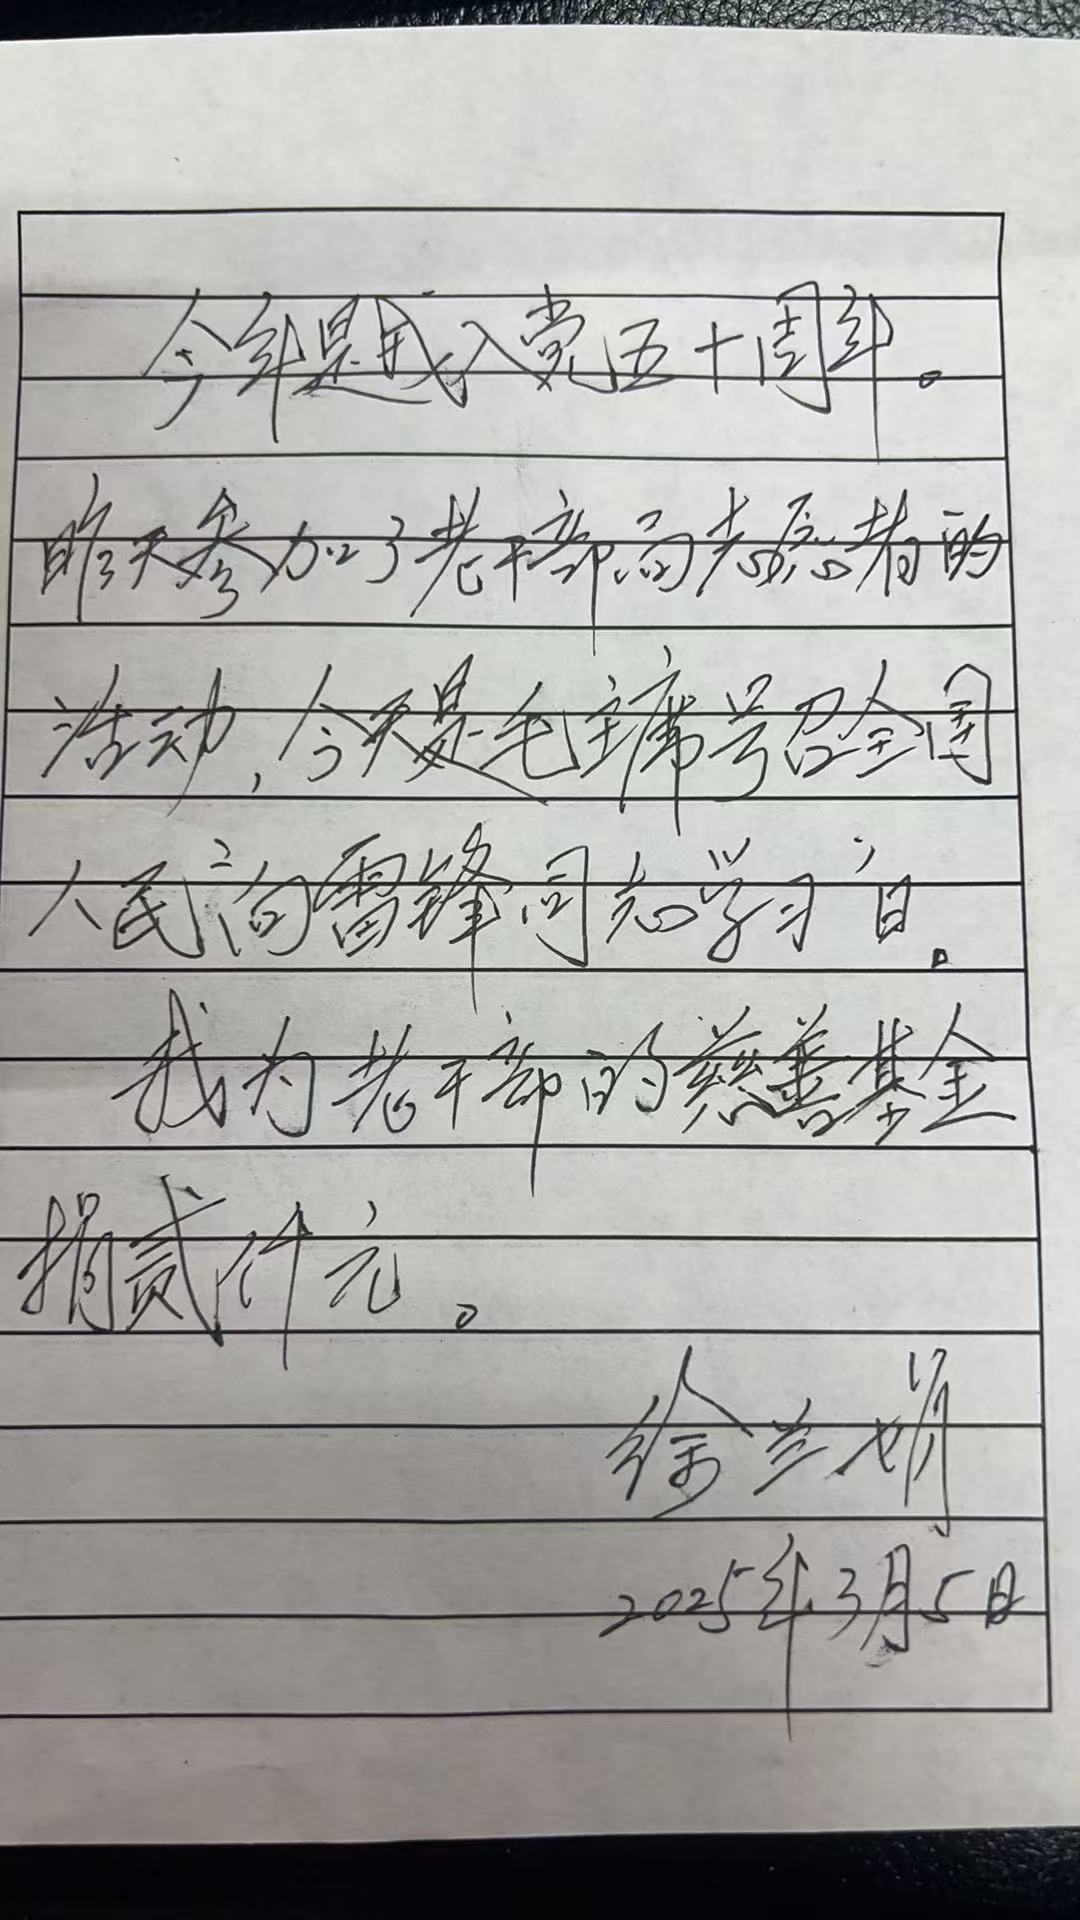 今年是我入党五十周年。
昨天参加了老干部局志愿者的
活动,今天是毛主席号召全国
人民向雷锋同志学习日。
我为老干部的慈善基金
捐贰仟元。
徐兰娟
2025年3月5日